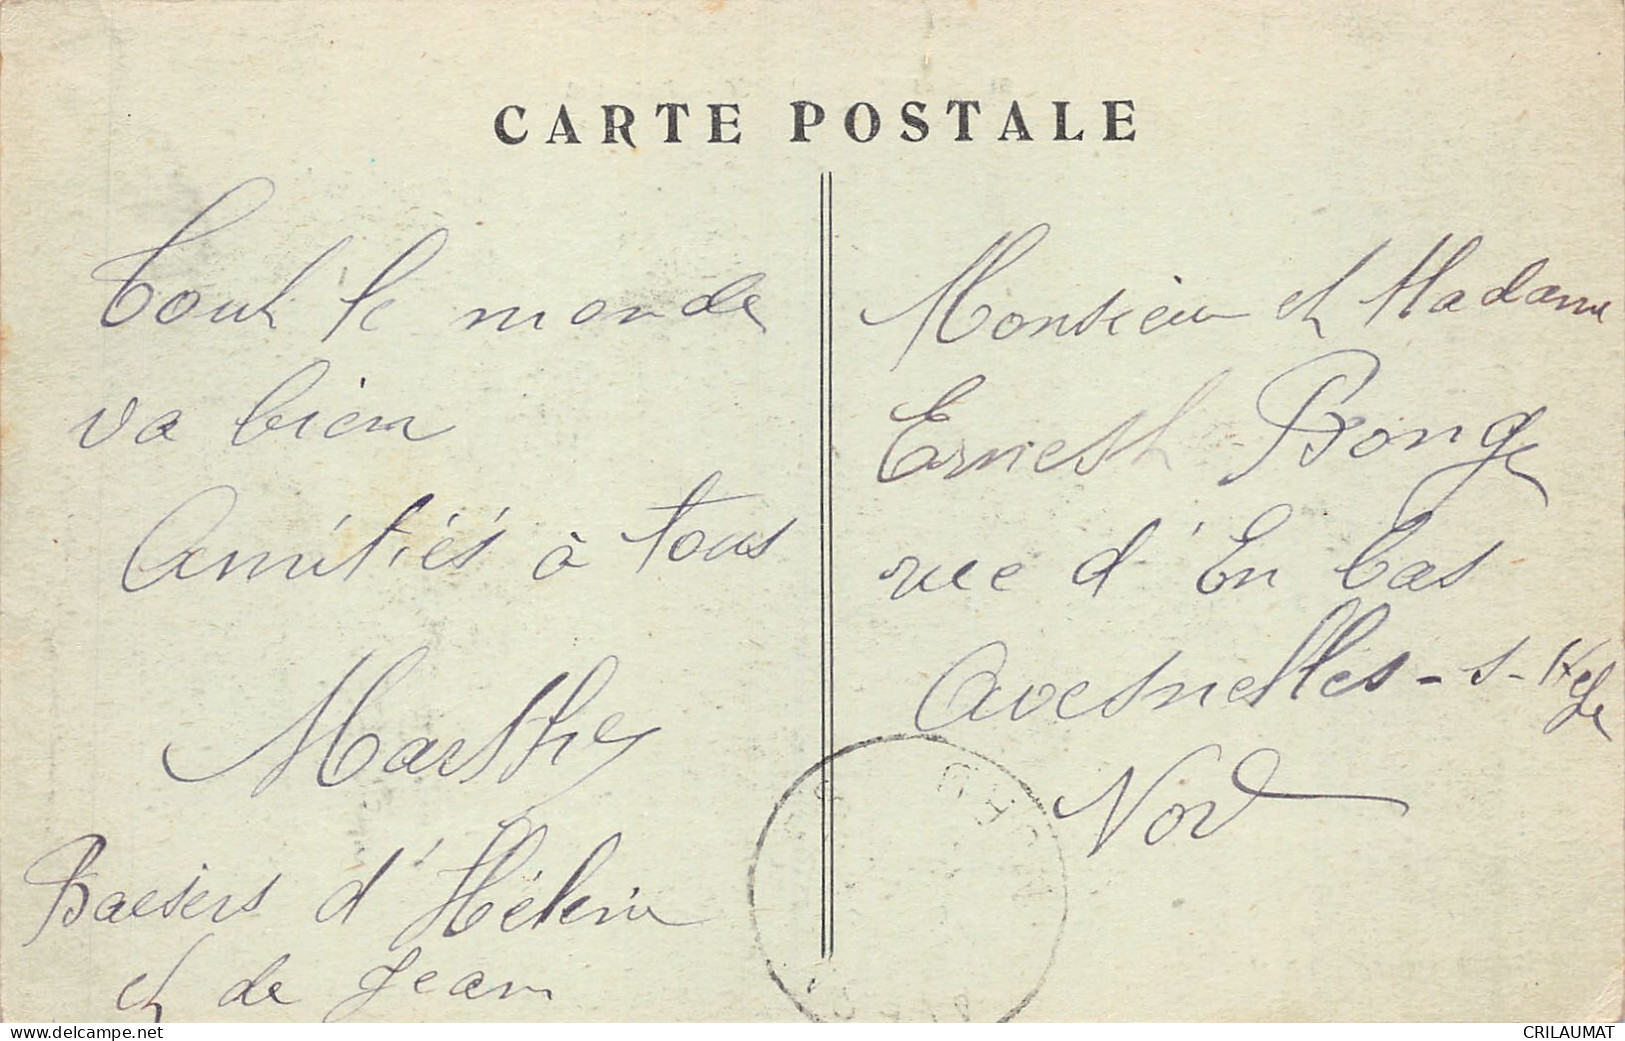 CARTE POSTALE
Tout le monde
va bien
Amitiés à tous
Marthe
Baesers d'Hélène
et de Jean
Monsieur et Madame
Ernest Bonge
rue d'En bas
Avesnelles-s-Helpe
Nord
www.delcampe.net
CRILAUMAT